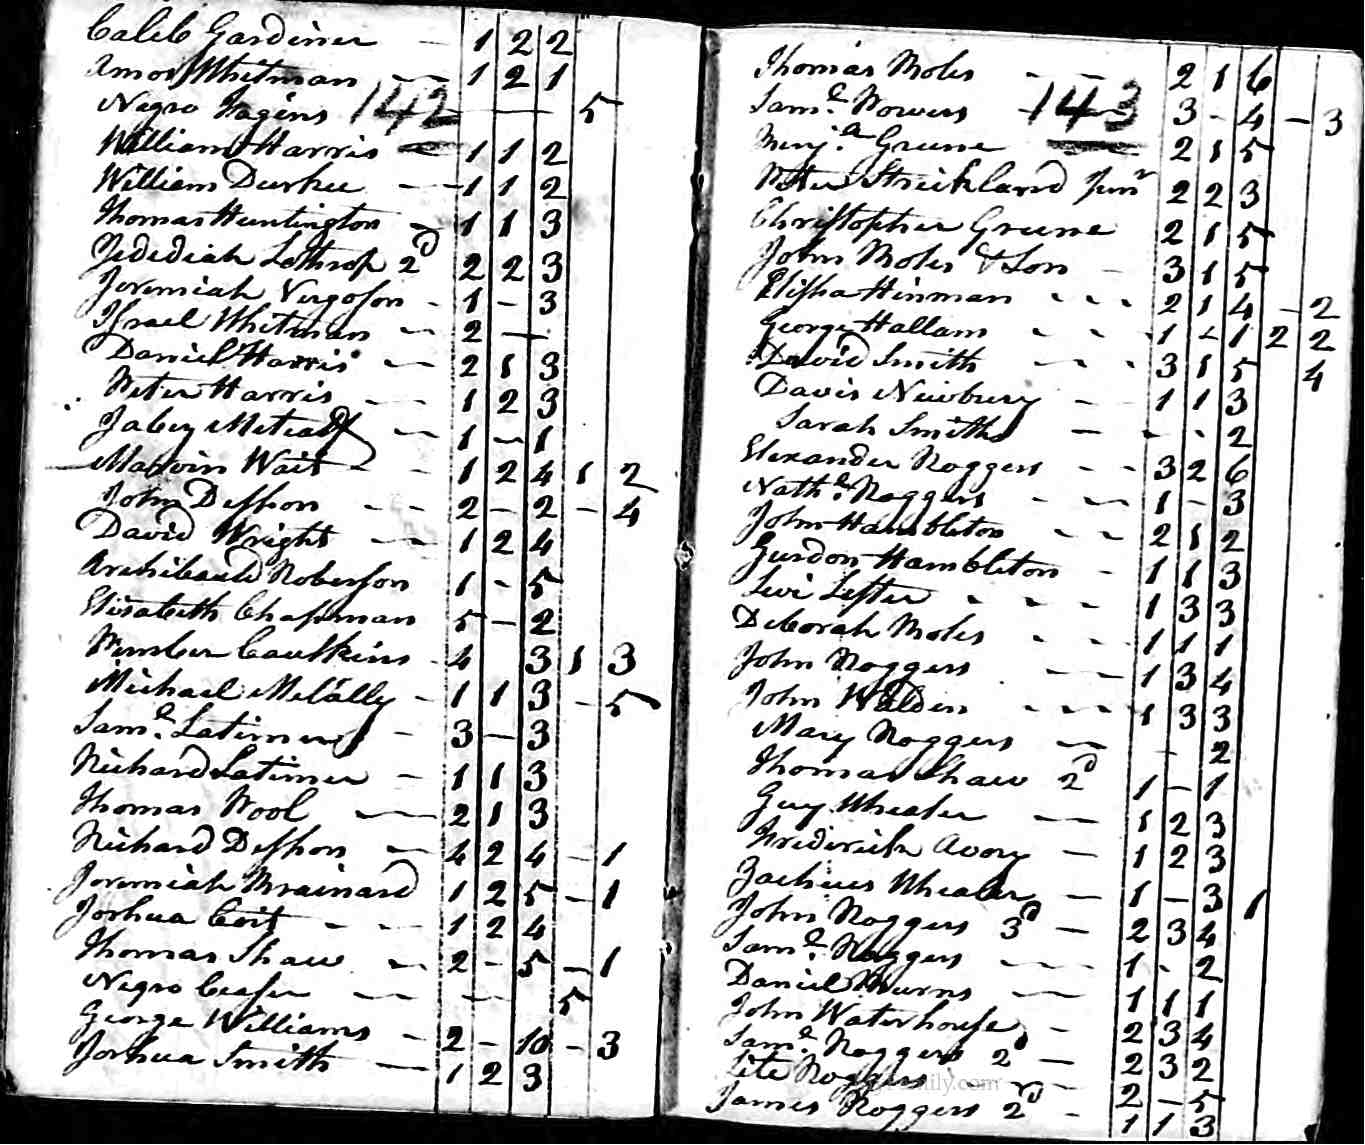 Caleb Gardiner — 1 2 2
Amos Whitman — 1 2 1
142
Negro Jagins — — — 5
William Harris — 1 1 2
William Durkee — 1 1 2
Thomas Huntington — 1 1 3
Jedediah Lothrop 2d 2 2 3
Jeremiah Vergoson - 1 - 3
Israel Whitman — 2 —
Daniel Harris — 2 1 3
Peter Harris — 1 2 3
Jabez Metcalf — 1 - 1
Marvin Wait - - 1 2 4 1 2
John Deshon - - - 2 - 2 - 4
David Wright — 1 2 4
Archibauld Roberson 1 - 5
Elisabeth Chapman 5 - 2
Pember Caulkins - 4 3 1 3
Michael Melally - 1 1 3 - 5
Saml. Latimer - 3 - 3
Richard Latimer - 1 1 3
Thomas Pool — 2 1 3
Richard Deshon — 4 2 4 - 1
Jeremiah Brainard 1 2 5 - 1
Joshua Coit - - - 1 2 4
Thomas Shaw — 2 - 5 - 1
Negro Ceaser — — 5
George Williams - 2 - 10 - 3
Joshua Smith — 1 2 3
Thomas Moles - - - 2 1 6
143
Saml. Powers - 3 - 4 - 3
Benj.a Greene 2 1 5
Peter Strickland Junr 2 2 3
Christopher Greene 2 1 5
John Moles & Son - 3 1 5
Elisha Hinman - - - 2 1 4 - 2
George Hallam - - - 1 - 1 2 2
David Smith - - - 3 1 5 4
Davis Newbury - - 1 1 3
Sarah Smith — - - 2
Elexander Roggers - - 3 2 6
Nathl. Roggers - — 1 - 3
John Hambleton - - - 2 1 2
Gurdon Hambleton - 1 1 3
Levi Lester - - - - 1 3 3
Deborah Moles - - - 1 1 1
John Roggers — 1 3 4
John Walden - - - 1 3 3
Mary Roggers — - 2
Thomas Shaw 2d 1 - 1
Guy Wheeler — 1 2 3
Frederick Avory — 1 2 3
Zacheus Wheeler — 1 - 3 1
John Roggers 3d — 2 3 4
Saml. Roggers — 1 - 2
Daniel Burns — 1 1 1
John Waterhouse - 2 3 4
Saml. Roggers 2d — 2 3 2
Lete Roggers — 2 - 5
James Roggers 2d - 1 1 3